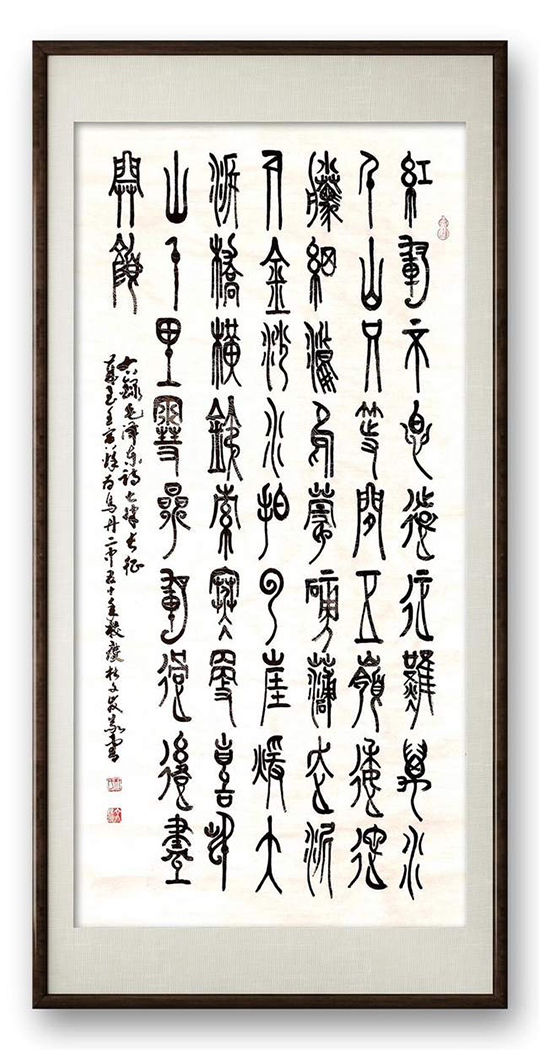 紅軍不怕遠征難萬水
千山只等閒五嶺逶迤
騰細浪烏蒙磅礴走泥
丸金沙水拍云崖暖大
渡橋橫鐵索寒更喜岷
山千里雪三軍過後盡
開顏
右錄毛澤東詩七律長征
为乌丹二中五十年校慶